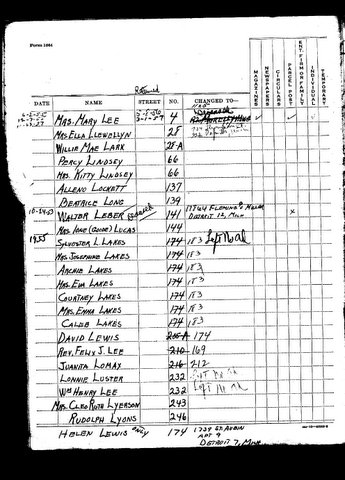 Form 1564
Returned
DATE NAME STREET NO. CHANGED TO— MAGAZINES NEWSPAPERS CIRCULARS PARCEL POST ENT. FIRM OR FAMILY INDIVIDUAL TEMPORARY
MRS. MARY LEE 4
MRS ELLA LLEWELLYN 28
WILLIE MAE LARK 28-A
PERCY LINDSEY 66
MRS. KITTY LINDSEY 66
ALLENO LOCKETT 137
BEATRICE LONG 139
10-24-53 WALTER LEBER 141 17864 FLEMING
DETROIT 12, MICH X
MRS. IONE (GUIDE) LUCAS 144
1955 SYLVESTER L. LAKES 174 183 Left No ad
MRS. JOSEPHINE LAKES 174 183
ARCHIE LAKES 174 183
MRS. EVA LAKES 174 183
COURTNEY LAKES 174 183
MRS. EMMA LAKES 174 183
CALEB LAKES 174 183
DAVID LEWIS 205-A 174
REV. FELIX J. LEE 210 169
JUANITA LOMAX 216 212
LONNIE LUSTER 232
WM HENRY LEE 232 Left No ad
MRS. CLEO RUTH LYERSON 243
RUDOLPH LYONS 246
HELEN LEWIS ONLY 174 1739 ST. AUBIN
APT 9
DETROIT 7, MICH